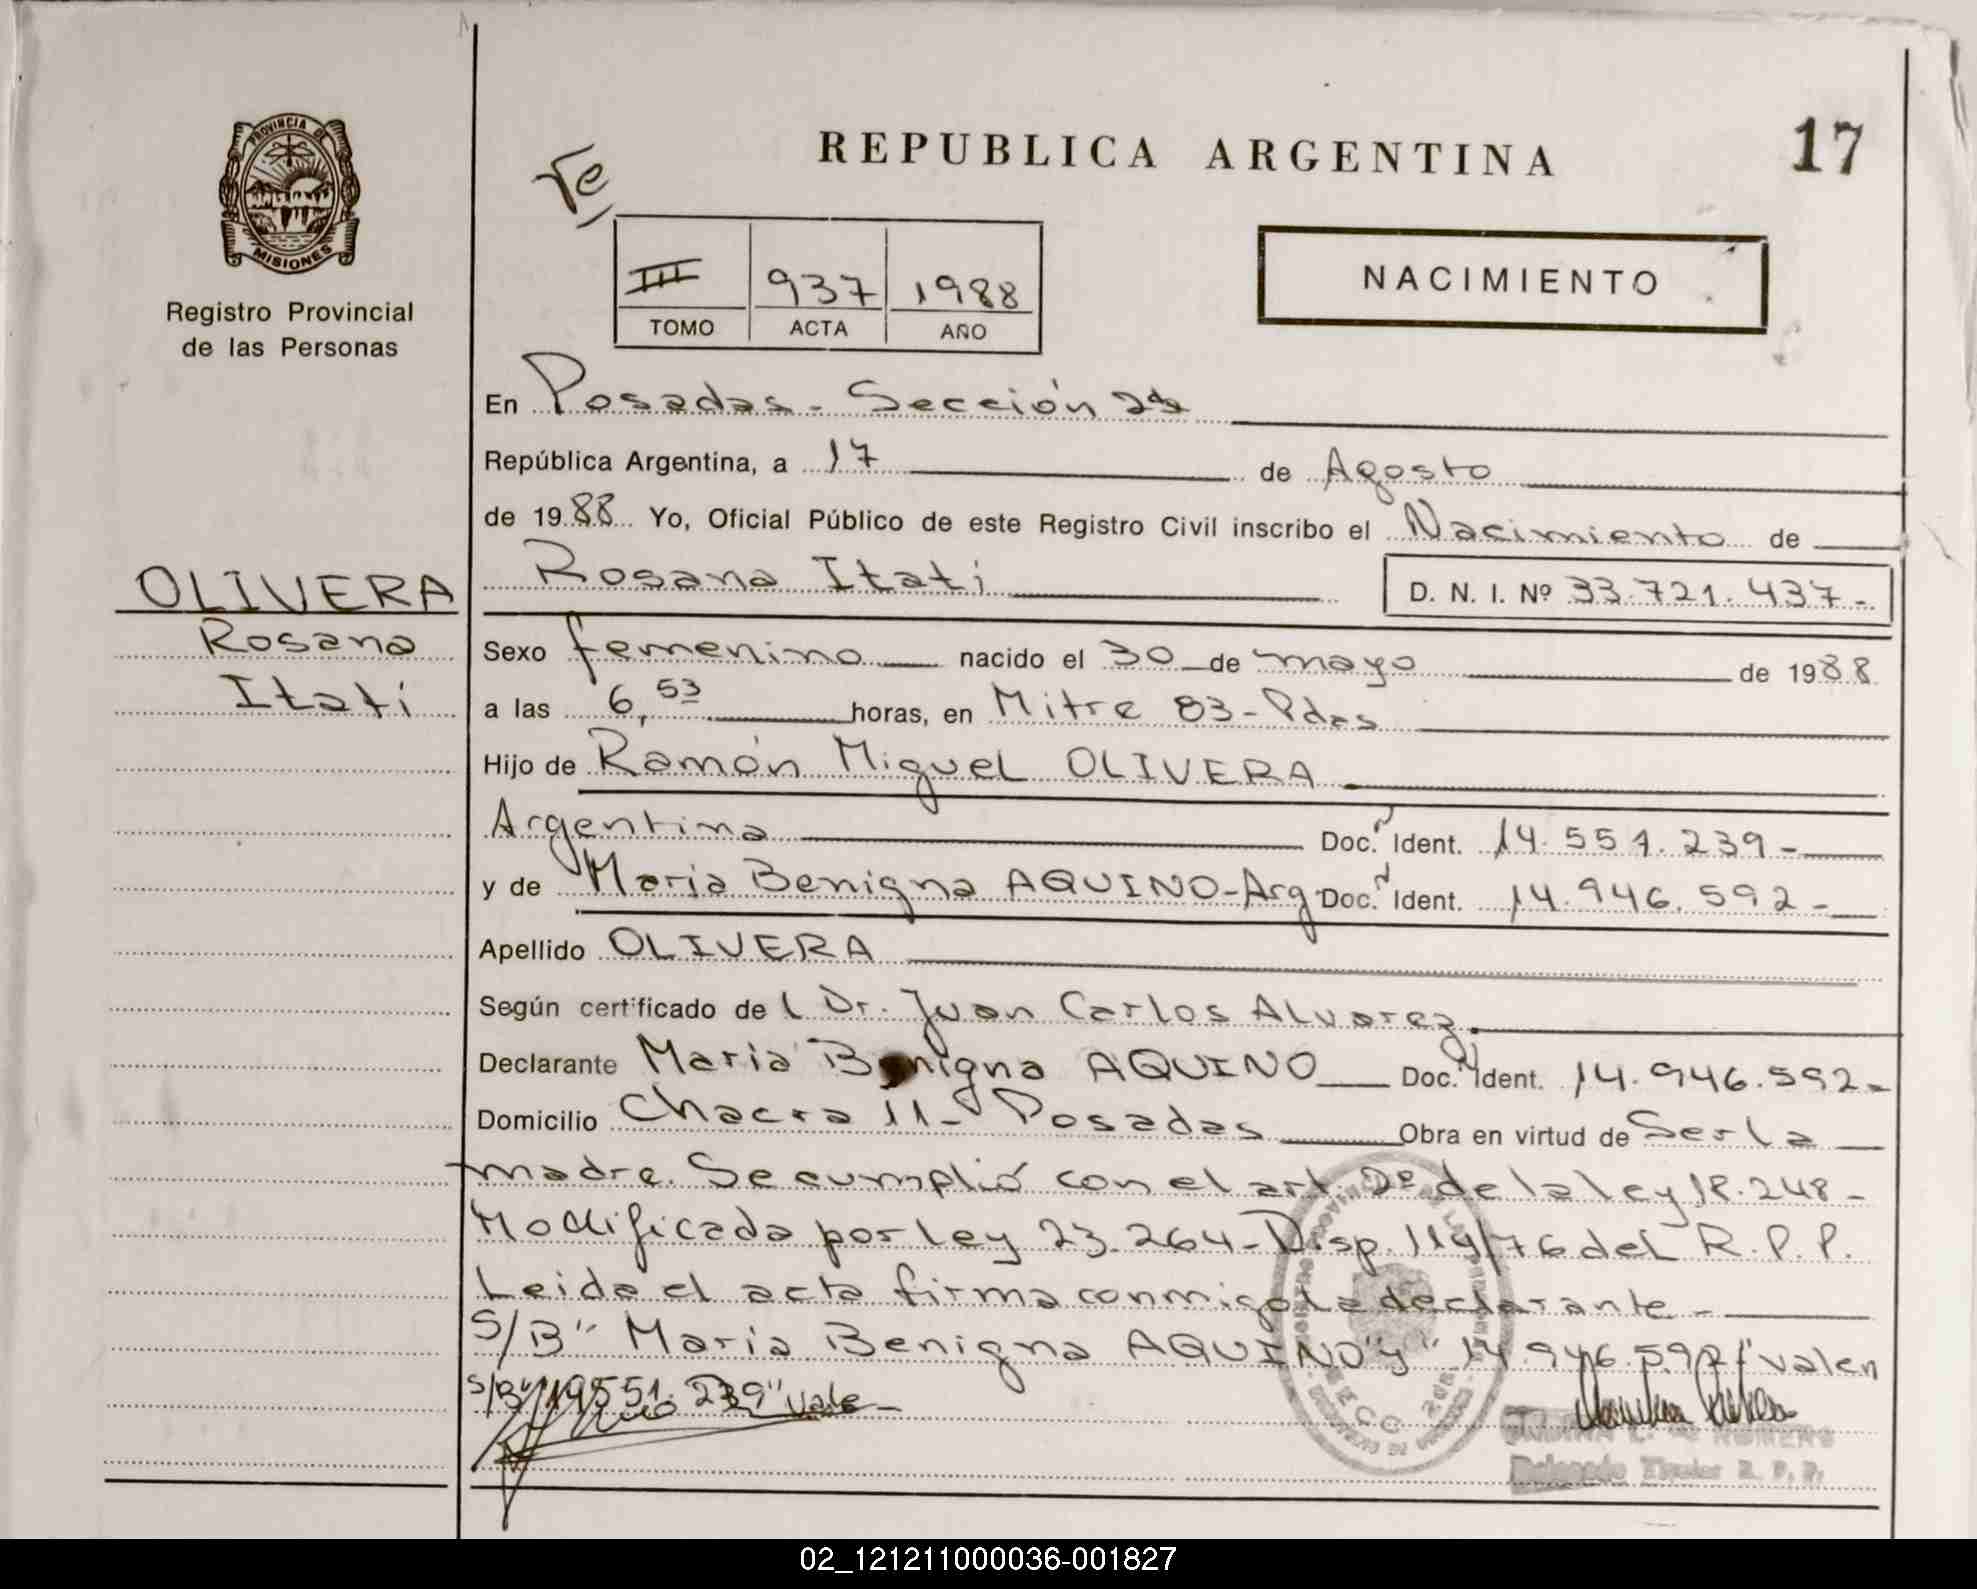 PROVINCIA DE
MISIONES
Registro Provincial
de las Personas
OLIVERA
Rosana
Itatí
REPUBLICA ARGENTINA
17
III 937 1988
TOMO ACTA AÑO
NACIMIENTO
En Posadas - Sección 2ª
República Argentina, a 17 de Agosto
de 1988 Yo, Oficial Público de este Registro Civil inscribo el Nacimiento de
Rosana Itatí D. N. I. Nº 33.721.437-
Sexo femenino nacido el 30 de mayo de 1988
a las 6,53 horas, en Mitre 83 - Pdas
Hijo de Ramón Miguel OLIVERA
Argentina Doc. Ident. 14.551.239-
y de Maria Benigna AQUINO-Arg Doc. Ident. 14.946.592-
Apellido OLIVERA
Según certificado del Dr. Juan Carlos Alvarez
Declarante Maria Benigna AQUINO Doc. Ident. 14.946.592-
Domicilio Chacra 11- Posadas Obra en virtud de Ser la
madre. Se cumplió con el art de la ley 18.248-
Modificada por ley 23.264- Disp. 114/76 del R.P.P.
Leida el acta firma conmigo la declarante-
S/B" Maria Benigna AQUINO" y "14.946.592" valen
S/B" 551.239" vale-
ROMERO
Delegado Titular R. P. P.
02_121211000036-001827